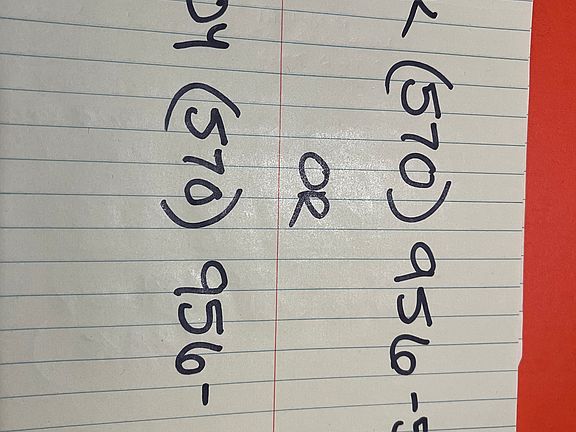 (570) 956-5
OR
(570) 956-